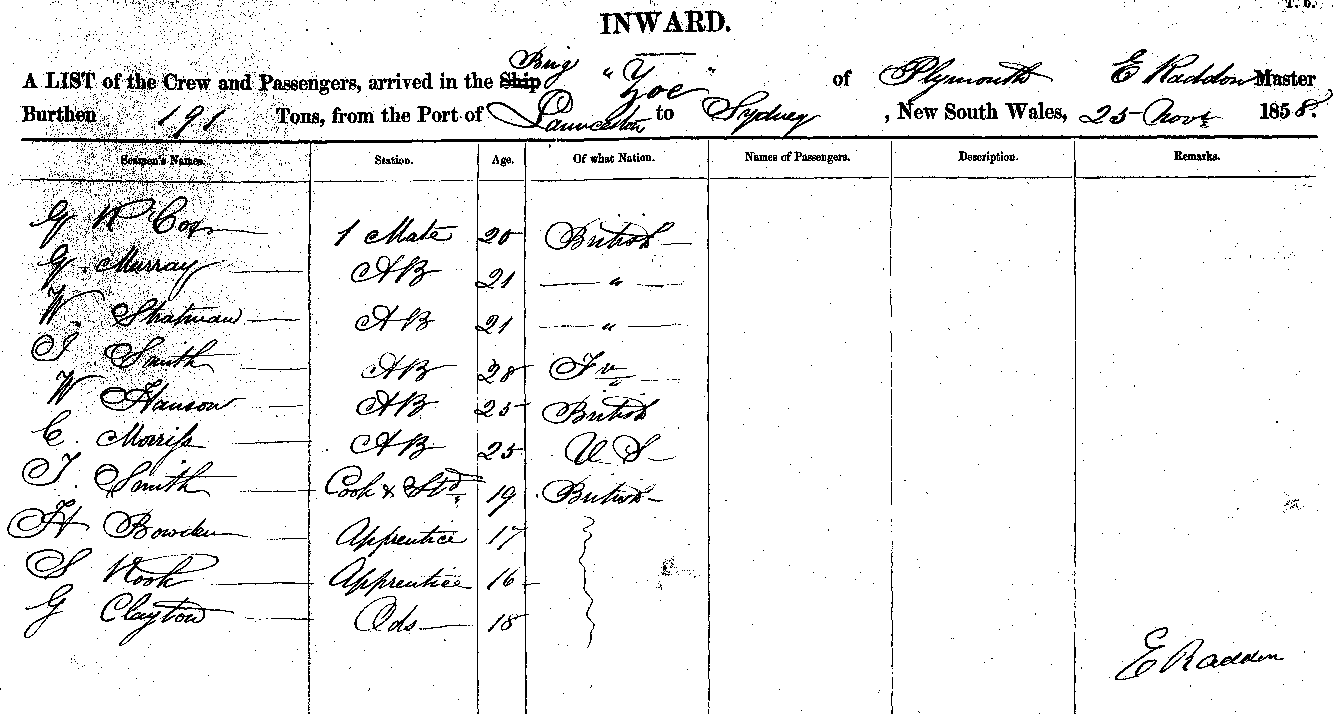 INWARD.
Brig
A LIST of the Crew and Passengers, arrived in the Ship "Zoe" of Plymouth E Raddon Master
Burthen 191 Tons, from the Port of Launceston to Sydney, New South Wales, 25 Novr 1858.
Seamen's Names. Station. Age. Of what Nation. Names of Passengers. Description. Remarks.
G R Cox 1 Mate 20 British
G. Murray AB 21 "
W. Stratman AB 21 "
Smith AB 28
W Hanson AB 25 British
C. Morriss AB 25 U S
Smith Cook & Std 19 British
H Bowden Apprentice 17
S Rook Apprentice 16
G Clayton Ods 18
E Raddon